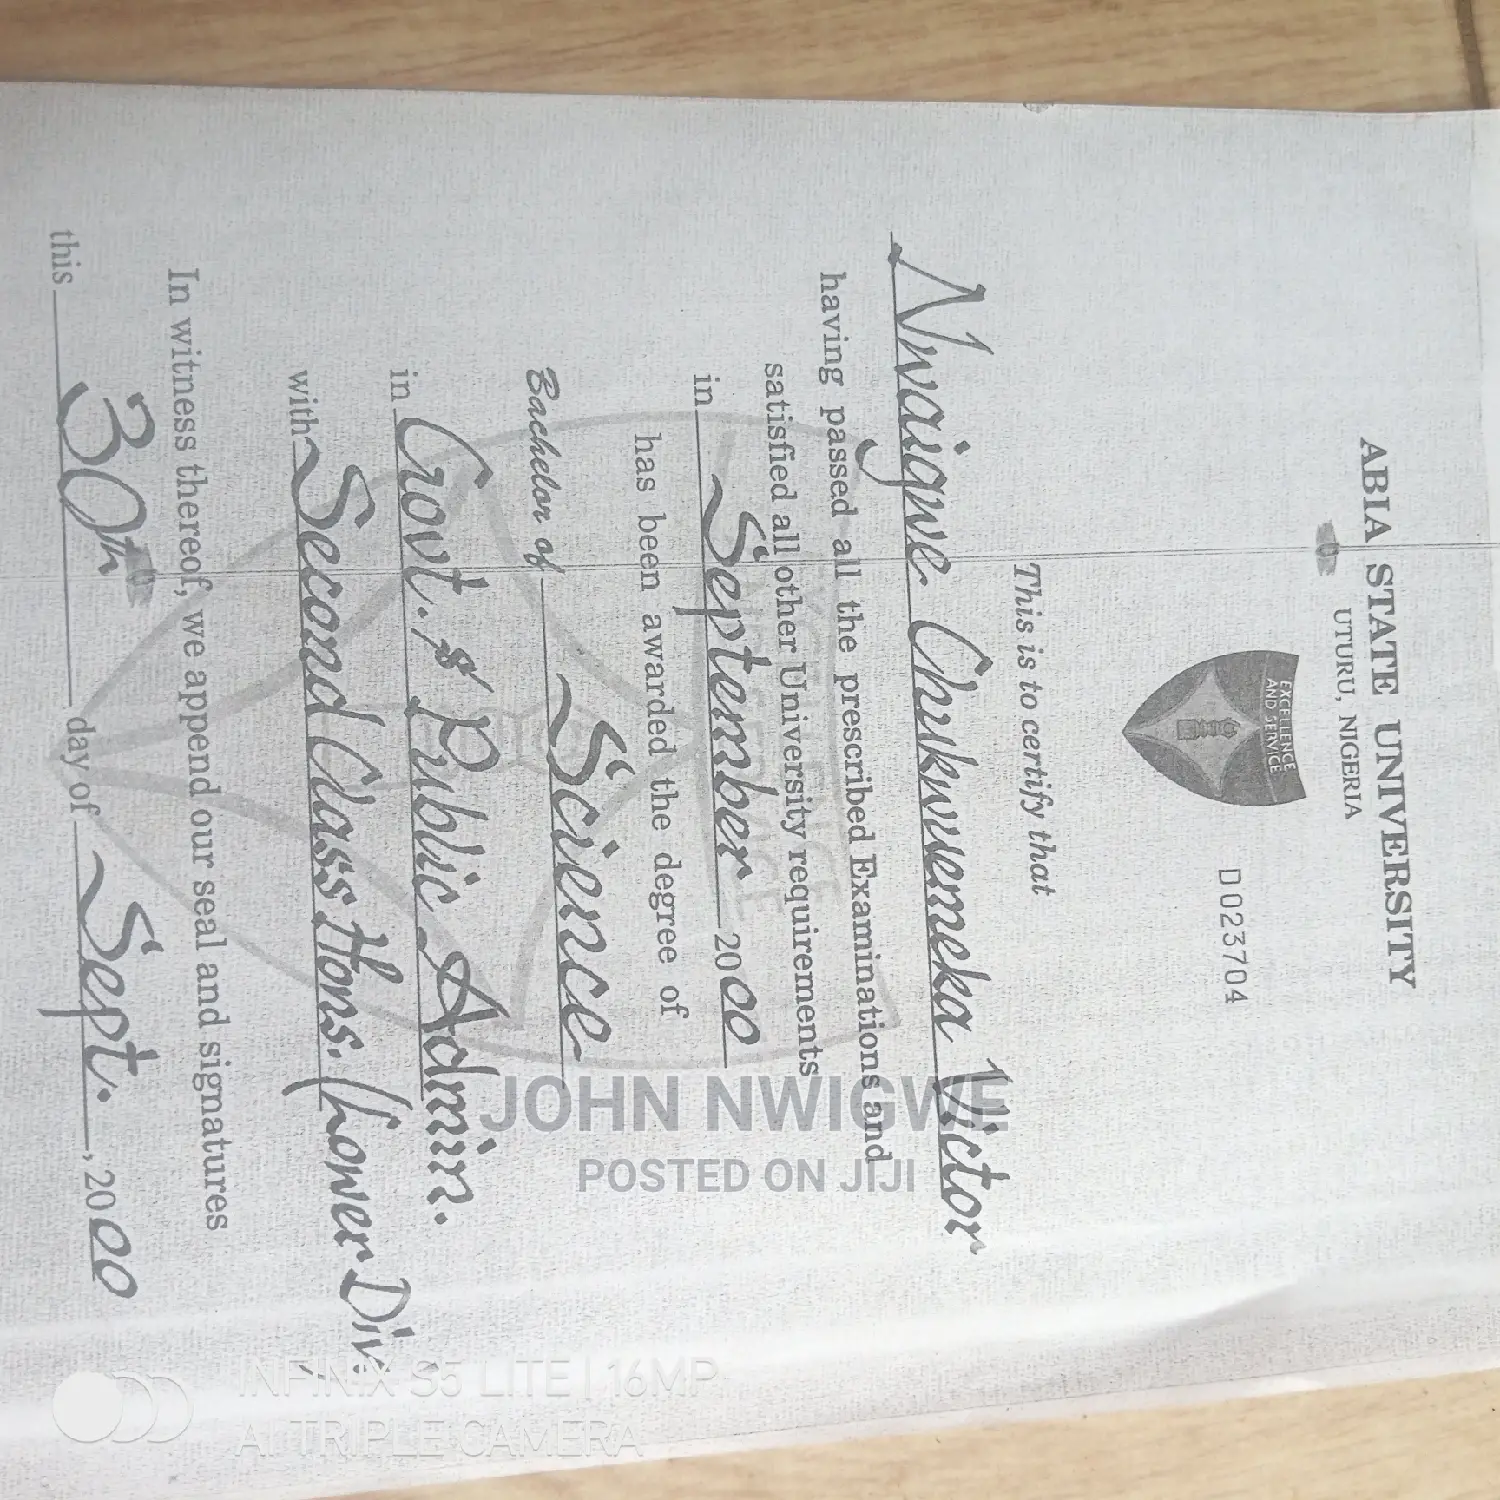 ABIA STATE UNIVERSITY
UTURU, NIGERIA
EXCELLENCE
AND SERVICE
D023704
This is to certify that
Nwaigwe Chukwuemeka Victor
having passed all the prescribed Examinations and
satisfied all other University requirements
in September 2000
has been awarded the degree of
Bachelor of Science
in Govt. & Public Admin.
with Second Class Hons. (Lower Div.
In witness thereof, we append our seal and signatures
this 30th day of Sept., 2000
JOHN NWIGWE
POSTED ON JIJI
INFINIX S5 LITE | 16MP
AI TRIPLE CAMERA